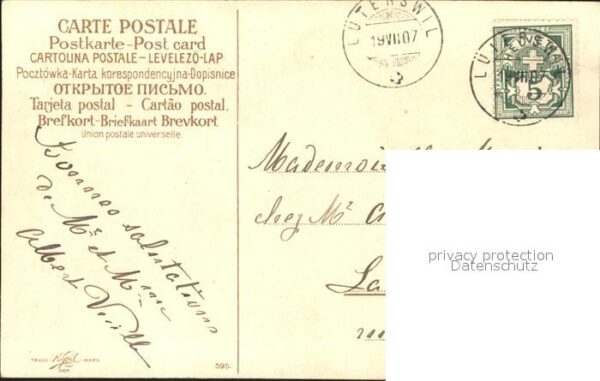 CARTE POSTALE
Postkarte - Post card
CARTOLINA POSTALE - LEVELEZŐ-LAP
Pocztówka - Karta korespondencyjna - Dopisnice
ОТКРЫТОЕ ПИСЬМО.
Tarjeta postal - Cartão postal.
Brefkort - Briefkaart Brevkort
Union postale universelle
LÜTERSWIL
19 VII 07
HELVETIA
5
LÜTERSWIL
VII 07
Mademoi
chez Mr
La
Bonnes salutations
de Mr et Mme
Albert
privacy protection
Datenschutz
TRADE MARK
DEP.
595